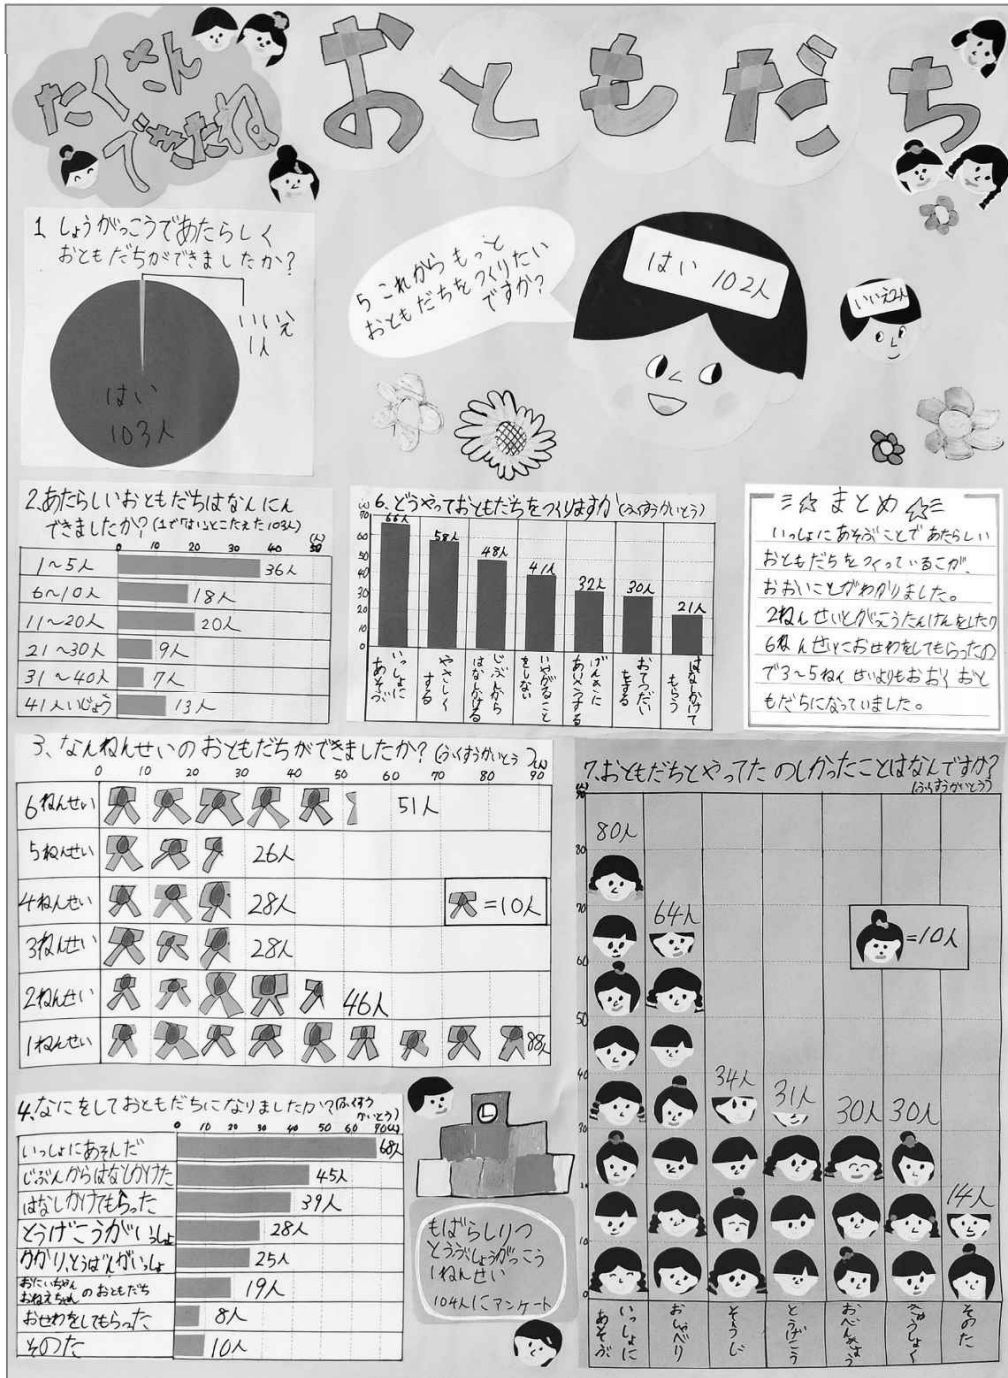 たくさん
できたね
おともだち
1 しょうがっこうであたらしく
おともだちができましたか?
いいえ
1人
はい
103人
5 これからもっと
おともだちをつくりたい
ですか?
はい 102人
いいえ2人
2.あたらしいおともだちはなんにん
できましたか?(1で「はい」とこたえた103人)
0 10 20 30 40 50 (人)
1~5人 36人
6~10人 18人
11~20人 20人
21~30人 9人
31~40人 7人
41人いじょう 13人
6.どうやっておともだちをつくりますか(ふくすうかいとう)
(人)
70
60
50
40
30
20
10
0
66人 58人 48人 41人 32人 30人 21人
いっしょに
あそぶ
やさしく
する
じぶんから
はなしかける
いやがること
をしない
げんきに
あいさつする
おてつだい
をする
はなしかけて
もらう
まとめ
いっしょにあそぶことであたらしい
おともだちをつくっているこが、
おおいことがわかりました。
2ねんせいとがっこうたんけんをしたり
6ねんせいにおせわをしてもらったの
で3~5ねんせいよりもおおくおと
もだちになっていました。
3.なんねんせいのおともだちができましたか?(ふくすうかいとう)
0 10 20 30 40 50 60 70 80 90 (人)
6ねんせい 51人
5ねんせい 26人
4ねんせい 28人
=10人
3ねんせい 28人
2ねんせい 46人
1ねんせい 88人
4.なにをしておともだちになりましたか?(ふくすう
かいとう)
0 10 20 30 40 50 60 90(人)
いっしょにあそんだ 68人
じぶんからはなしかけた 45人
はなしかけてもらった 39人
とうげこうがいっしょ 28人
かかり、とうばんがいっしょ 25人
おにいちゃん
おねえちゃん のおともだち 19人
おせわをしてもらった 8人
そのた 10人
もばらしりつ
とうぶしょうがっこう
1ねんせい
104人にアンケート
7.おともだちとやってたのしかったことはなんですか?
(ふくすうかいとう)
(人)
90
80
70
60
50
40
30
20
10
0
80人 64人 34人 31人 30人 30人 14人
=10人
いっしょに
あそぶ
おしゃべり
そうじ
とうげこう
おべんきょう
きゅうしょく
そのた